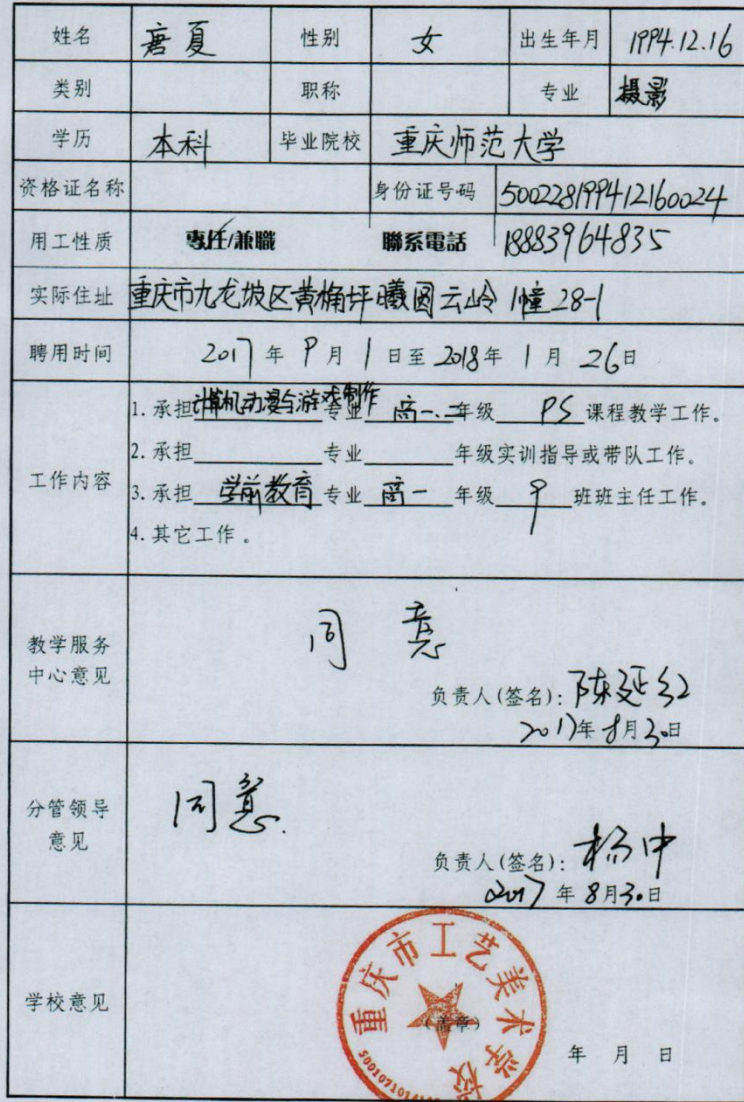 姓名 唐夏 性别 女 出生年月 1994.12.16
类别 职称 专业 摄影
学历 本科 毕业院校 重庆师范大学
资格证名称 身份证号码 500228199412160024
用工性质 專任/兼職 聯系電話 18883964835
实际住址 重庆市九龙坡区黄桷坪曦圆云岭1幢28-1
聘用时间 2017年9月1日至2018年1月26日
1. 承担计算机动漫与游戏制作专业高一.二年级PS课程教学工作。
2. 承担专业年级实训指导或带队工作。
工作内容
3. 承担学前教育专业高一年级9班班主任工作。
4. 其它工作。
同意
教学服务
中心意见
负责人(签名): 陈延红
2017年8月30日
同意.
分管领导
意见
负责人(签名): 杨中
2017年8月30日
重庆市工艺美术学校
学校意见
(盖章)
年 月 日